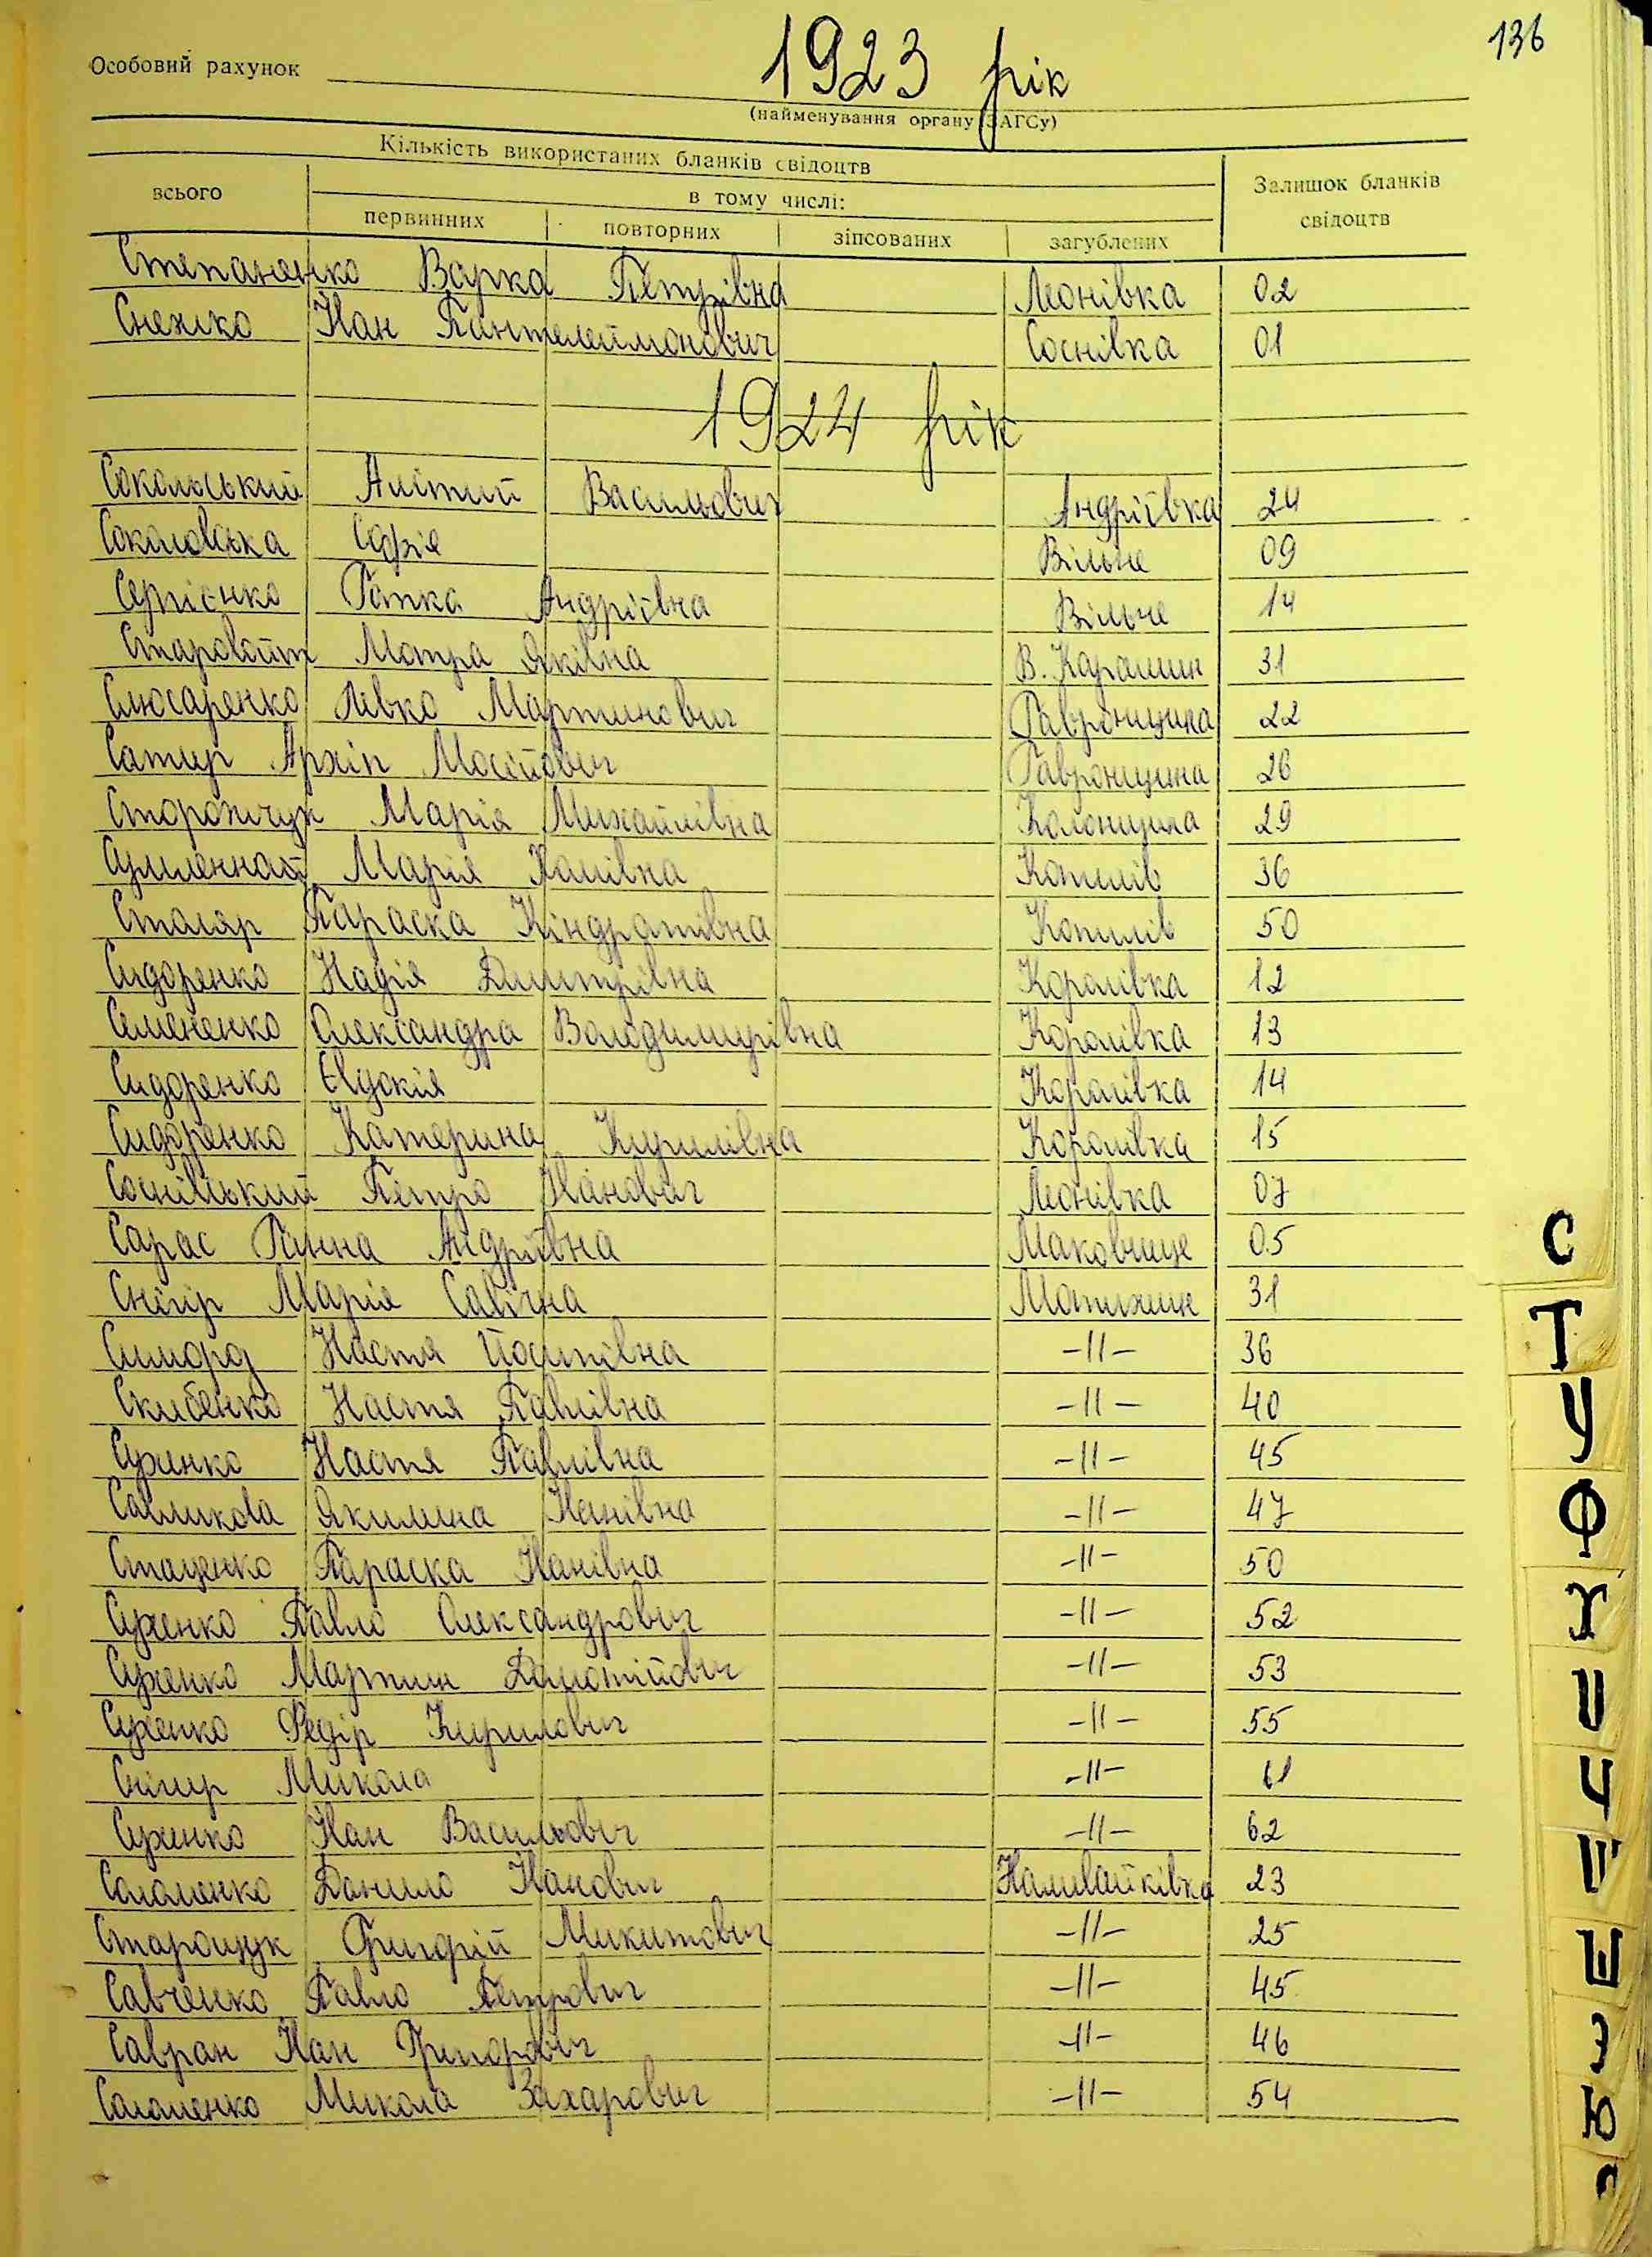 136
Особовий рахунок 1923 рік
(найменування органу ЗАГСу)
Кількість використаних бланків свідоцтв
всього в тому числі: Залишок бланків свідоцтв
первинних повторних зіпсованих загублених
Степаненко Варка Петрівна Леонівка 02
Снежко Іван Пантелеймонович Соснівка 01
1924 рік
Сокольський Васильович Андріївка 24
Соколовська Софія Вільне 09
Сергієнко Гапка Андріївна Вільне 14
Старовойт Мотра Яківна В. Карашин 31
Слюсаренко Левко Мартинович Гавронщина 22
Сатир Архіп Мосійович Гавронщина 26
Сторожчук Марія Михайлівна Колонщина 29
Марія Іванівна Копилів 36
Столяр Параска Кіндратівна Копилів 50
Сидоренко Надія Дмитрівна Королівка 12
Семененко Олександра Володимирівна Королівка 13
Сидоренко Євдокія Королівка 14
Сидоренко Катерина Кирилівна Королівка 15
Соснівський Петро Іванович Леонівка 07
Сарас Ганна Андріївна Маковище 05
Снігір Марія Савічна Мотижин 31
Настя Йосипівна -11- 36
Скибенко Настя Павлівна -11- 40
Сухенко Настя Павлівна -11- 45
Савликова Якилина Іванівна -11- 47
Стаценко Параска Іванівна -11- 50
Сухенко Павло Олександрович -11- 52
Сухенко Мартин -11- 53
Сухенко Федір Кирилович -11- 55
Снігир Микола -11- 61
Сухенко Іван Васильович -11- 62
Соломенко Данило Іванович Наливайківка 23
Старощук Григорій Микитович -11- 25
Савченко Павло Петрович -11- 45
Савран Іван Григорович -11- 46
Соломенко Микола Захарович -11- 54
С
Т
У
Ф
Х
Ц
Ч
Ш
Щ
Э
Ю